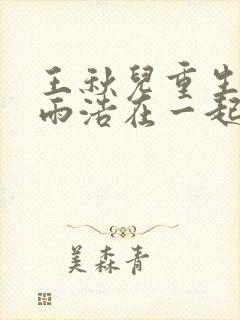 王秋兒重生
雨浩在一起
美森青